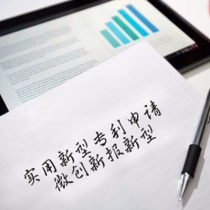 实用新型专利申请
微创新报新型